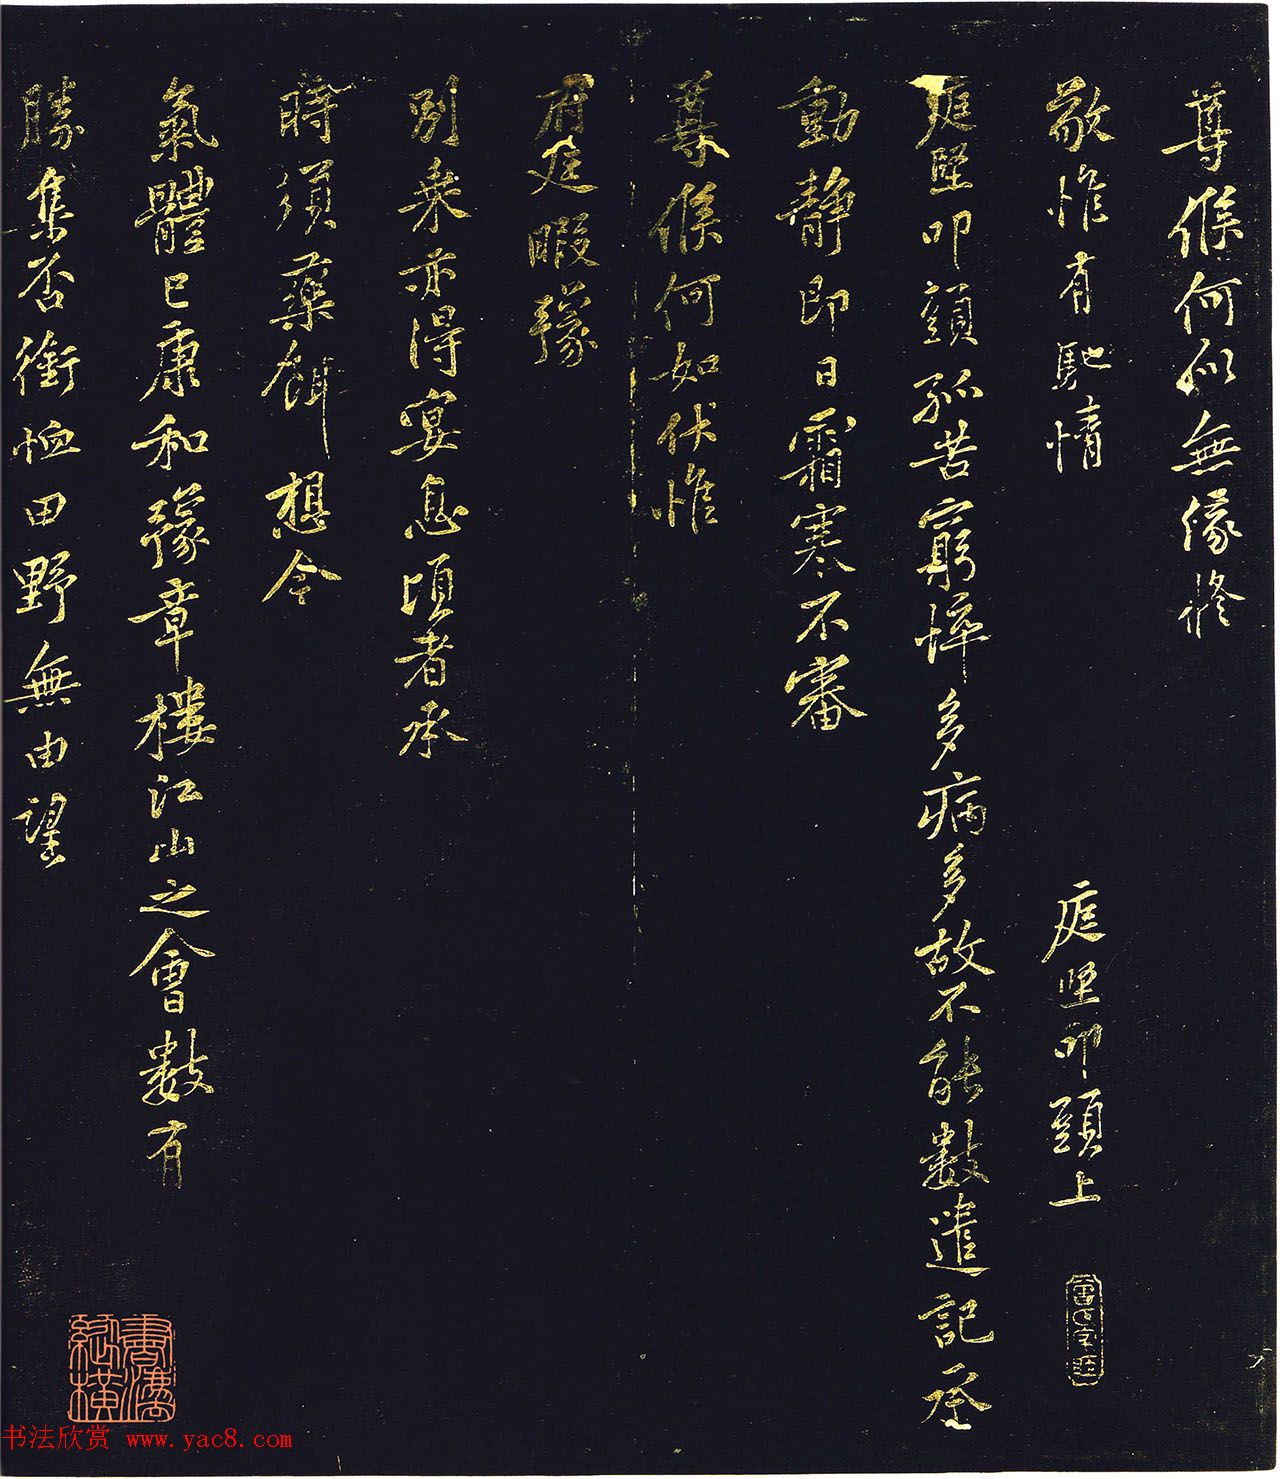 尊候何似無緣修
敬惟有馳情
庭堅叩頭上
庭堅叩頭孤苦窮悴多病多故不能數遣記承
動静即日霜寒不審
尊候何如伏惟
府廷暇豫
別乘亦得宴息頃者承
時須藥餌想今
氣體已康和豫章樓江山之會數有
勝集否銜恤田野無由望
书法欣赏 www.yac8.com